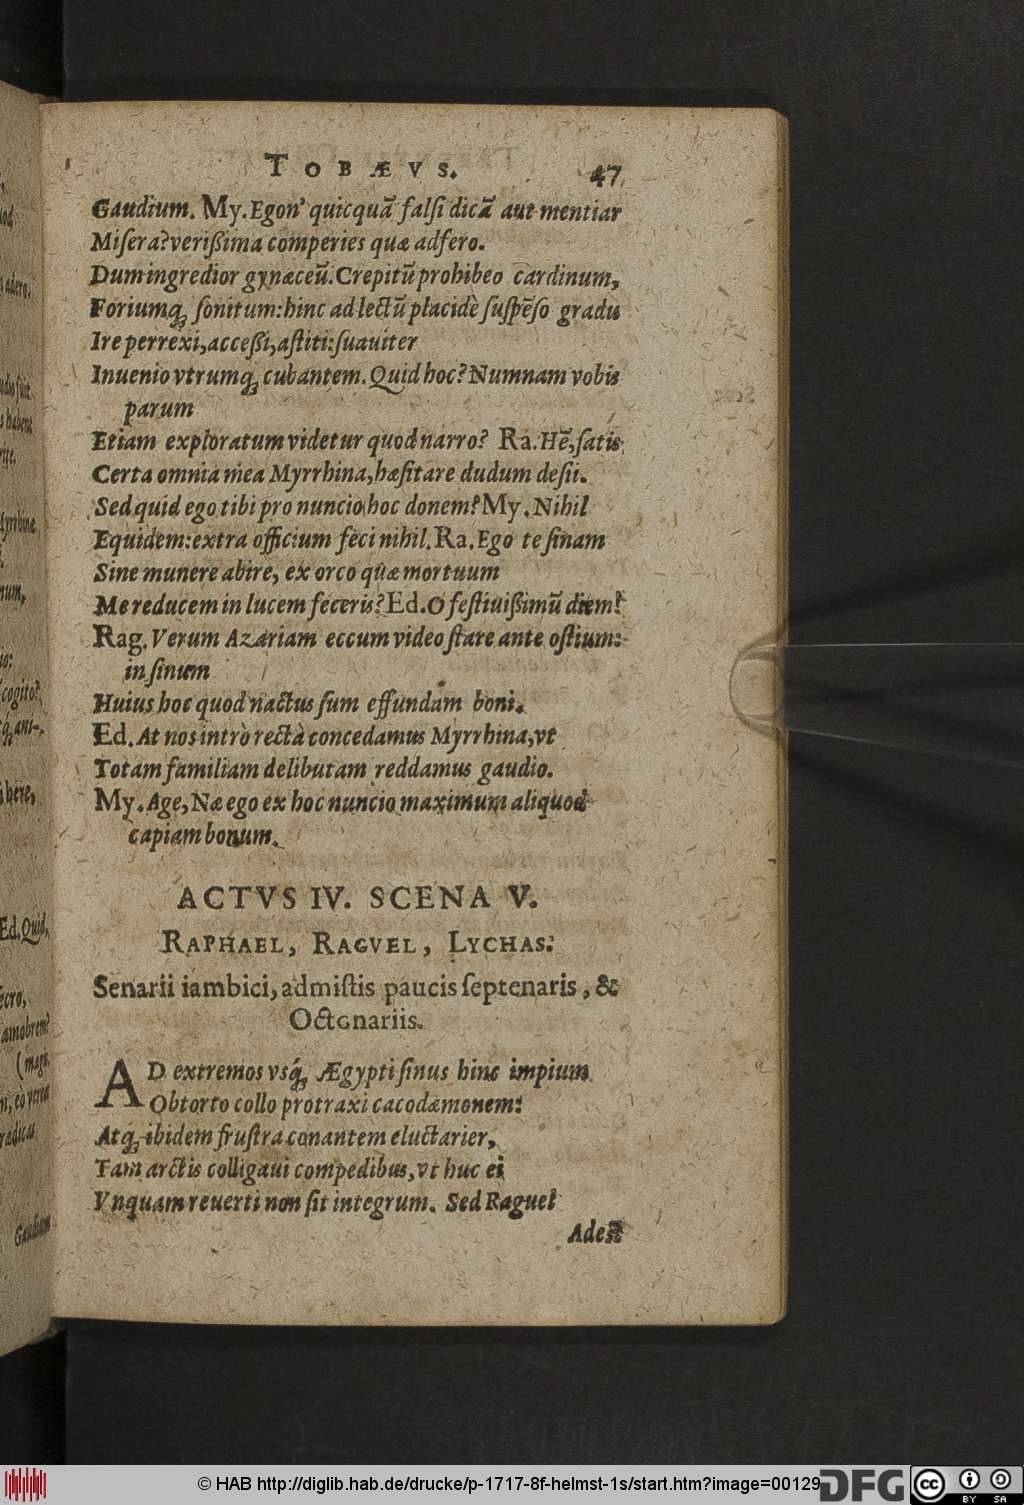 TOBÆVS. 47
Gaudium. My. Egon' quicquã falsi dicã aut mentiar
Misera? verißima comperies quæ adfero.
Dum ingredior gynæceũ. Crepitũ prohibeo cardinum,
Foriumq́ꝫ sonitum: hinc ad lectũ placidè suspẽso gradu
Ire perrexi, acceßi, astiti: suauiter
Inuenio vtrumq́ꝫ cubantem. Quid hoc? Numnam vobis
parum
Etiam exploratum videtur quod narro? Ra. Hẽ, satis
Certa omnia mea Myrrhina, hæsitare dudum desii.
Sed quid ego tibi pro nuncio hoc donem? My. Nihil
Equidem: extra officium feci nihil. Ra. Ego te sinam
Sine munere abire, ex orco quæ mortuum
Me reducem in lucem feceris? Ed. O festiuißimũ diem!
Rag. Verum Azariam eccum video stare ante ostium:
in sinum
Huius hoc quod nactus sum effundam boni.
Ed. At nos intrò rectà concedamus Myrrhina, vt
Totam familiam delibutam reddamus gaudio.
My. Age, Næ ego ex hoc nuncio maximum aliquod
capiam bonum.
ACTVS IV. SCENA V.
RAPHAEL, RAGVEL, LYCHAS.
Senarii iambici, admistis paucis septenaris, &
Octonariis.
AD extremos vsq́ꝫ Ægypti sinus hinc impium
Obtorto collo protraxi cacodæmonem:
Atq́ꝫ ibidem frustra conantem eluctarier,
Tam arctis colligaui compedibus, vt huc ei
Vnquam reuerti non sit integrum. Sed Raguel
Adest
© HAB http://diglib.hab.de/drucke/p-1717-8f-helmst-1s/start.htm?image=00129
DFG
cc BY SA